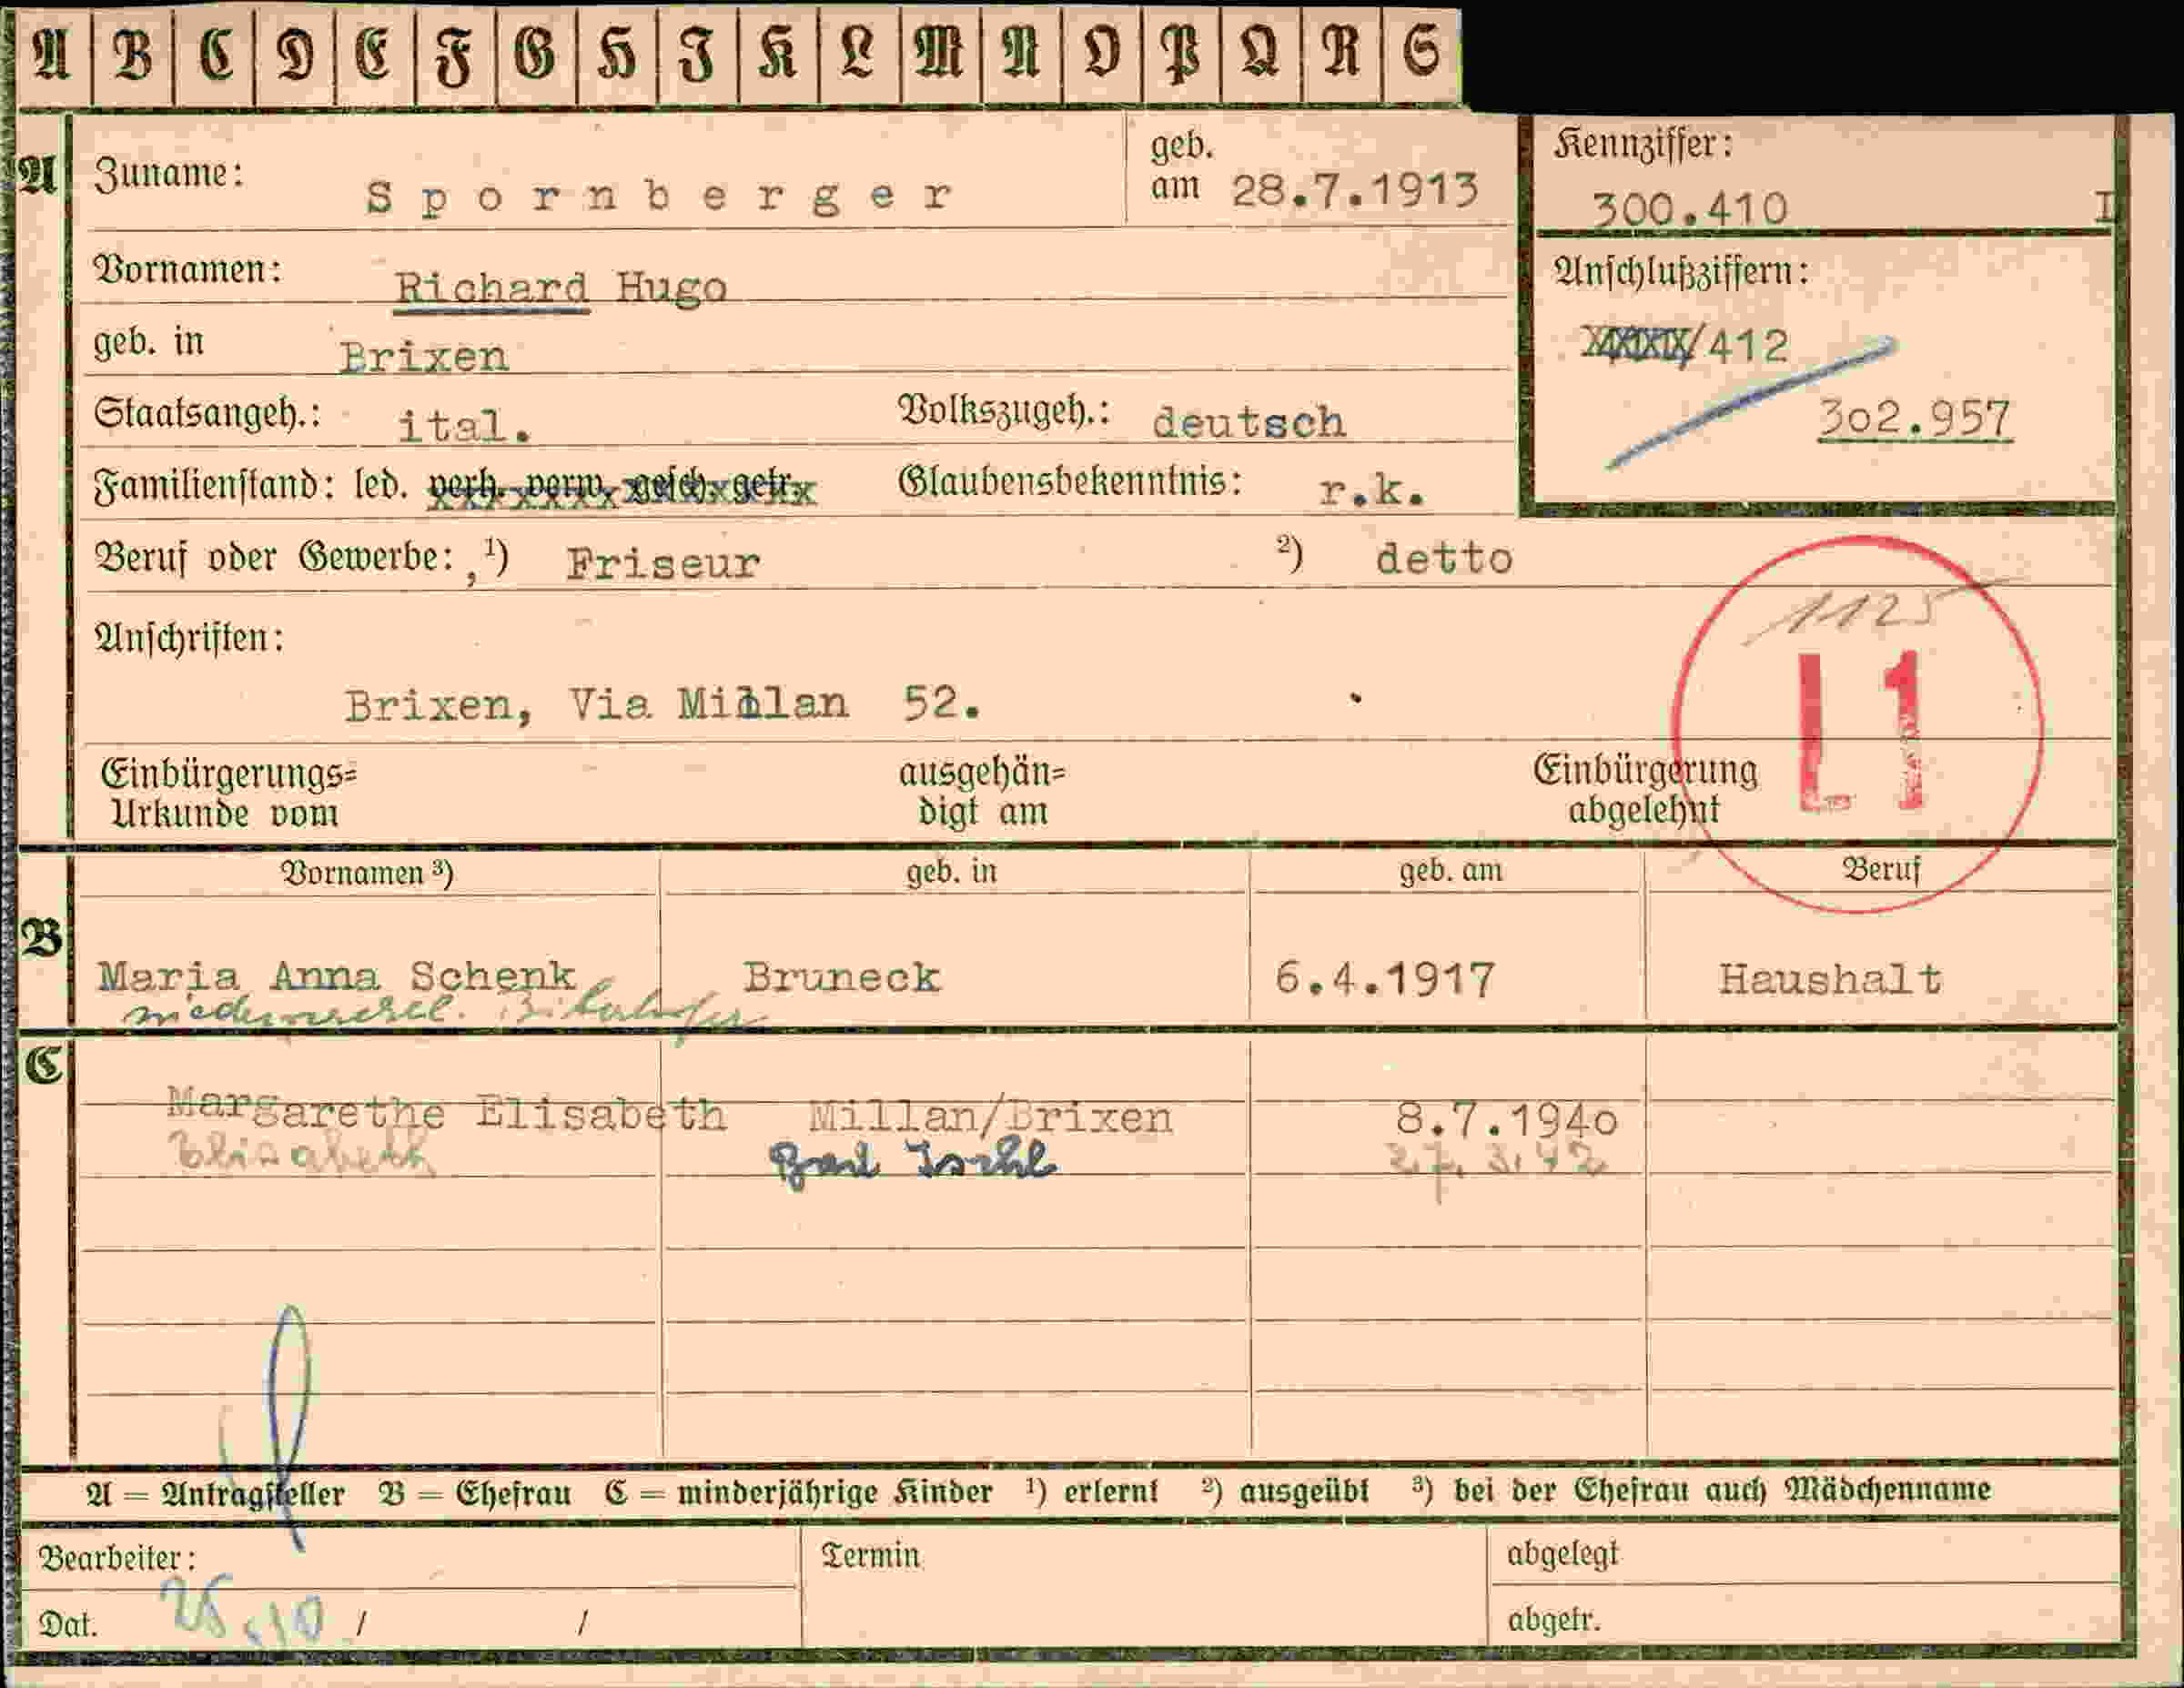 A B C D E F G H I K L M N O P Q R S
A Zuname: Spornberger geb. am 28.7.1913
Kennziffer: 300.410 I
Vornamen: Richard Hugo
Anschlußziffern:
/412
302.957
geb. in Brixen
Staatsangeh.: ital. Volkszugeh.: deutsch
Familienstand: led. verh. verw. gesch. getr. Glaubensbekenntnis: r.k.
Beruf oder Gewerbe: ¹) Friseur ²) detto
1125
Anschriften:
L1
Brixen, Via Millan 52.
Einbürgerungs= ausgehän= Einbürgerung
Urkunde vom digt am abgelehnt
Vornamen ³) geb. in geb. am Beruf
B
Maria Anna Schenk Bruneck 6.4.1917 Haushalt
C
Margarethe Elisabeth Millan/Brixen 8.7.1940
Elisabeth Bad Ischl 27.3.42
A = Antragsteller B = Ehefrau C = minderjährige Kinder ¹) erlernt ²) ausgeübt ³) bei der Ehefrau auch Mädchenname
Bearbeiter: Termin abgelegt
Dat. 25.10 / / abgetr.